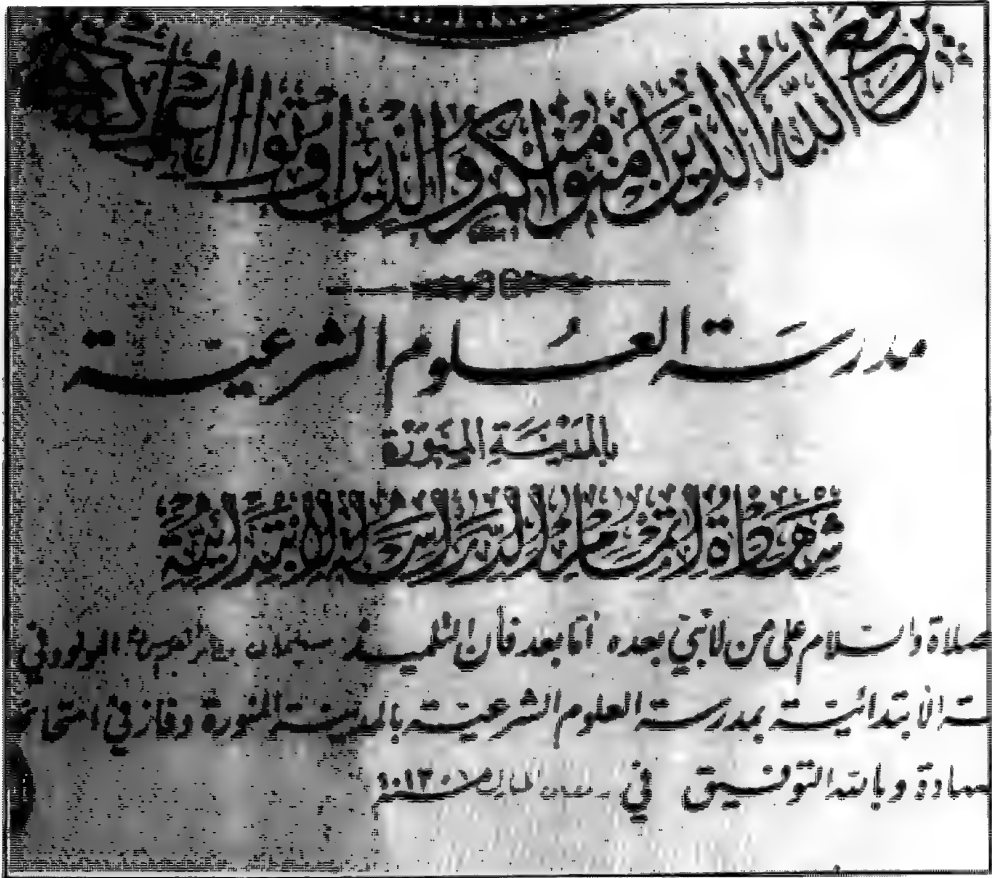 يرفع الله الذين آمنوا منكم والذين أوتوا العلم
مدرسة العلوم الشرعية
بالمدينة المنورة
شهادة اتمام الدراسة الابتدائية
صلاة والسلام على من لا نبي بعده أما بعد فأن التلميذ سليمان المولود في
ـة الابتدائية بمدرسة العلوم الشرعية بالمدينة المنورة وفاز في امتحان
وبالله التوفيق في